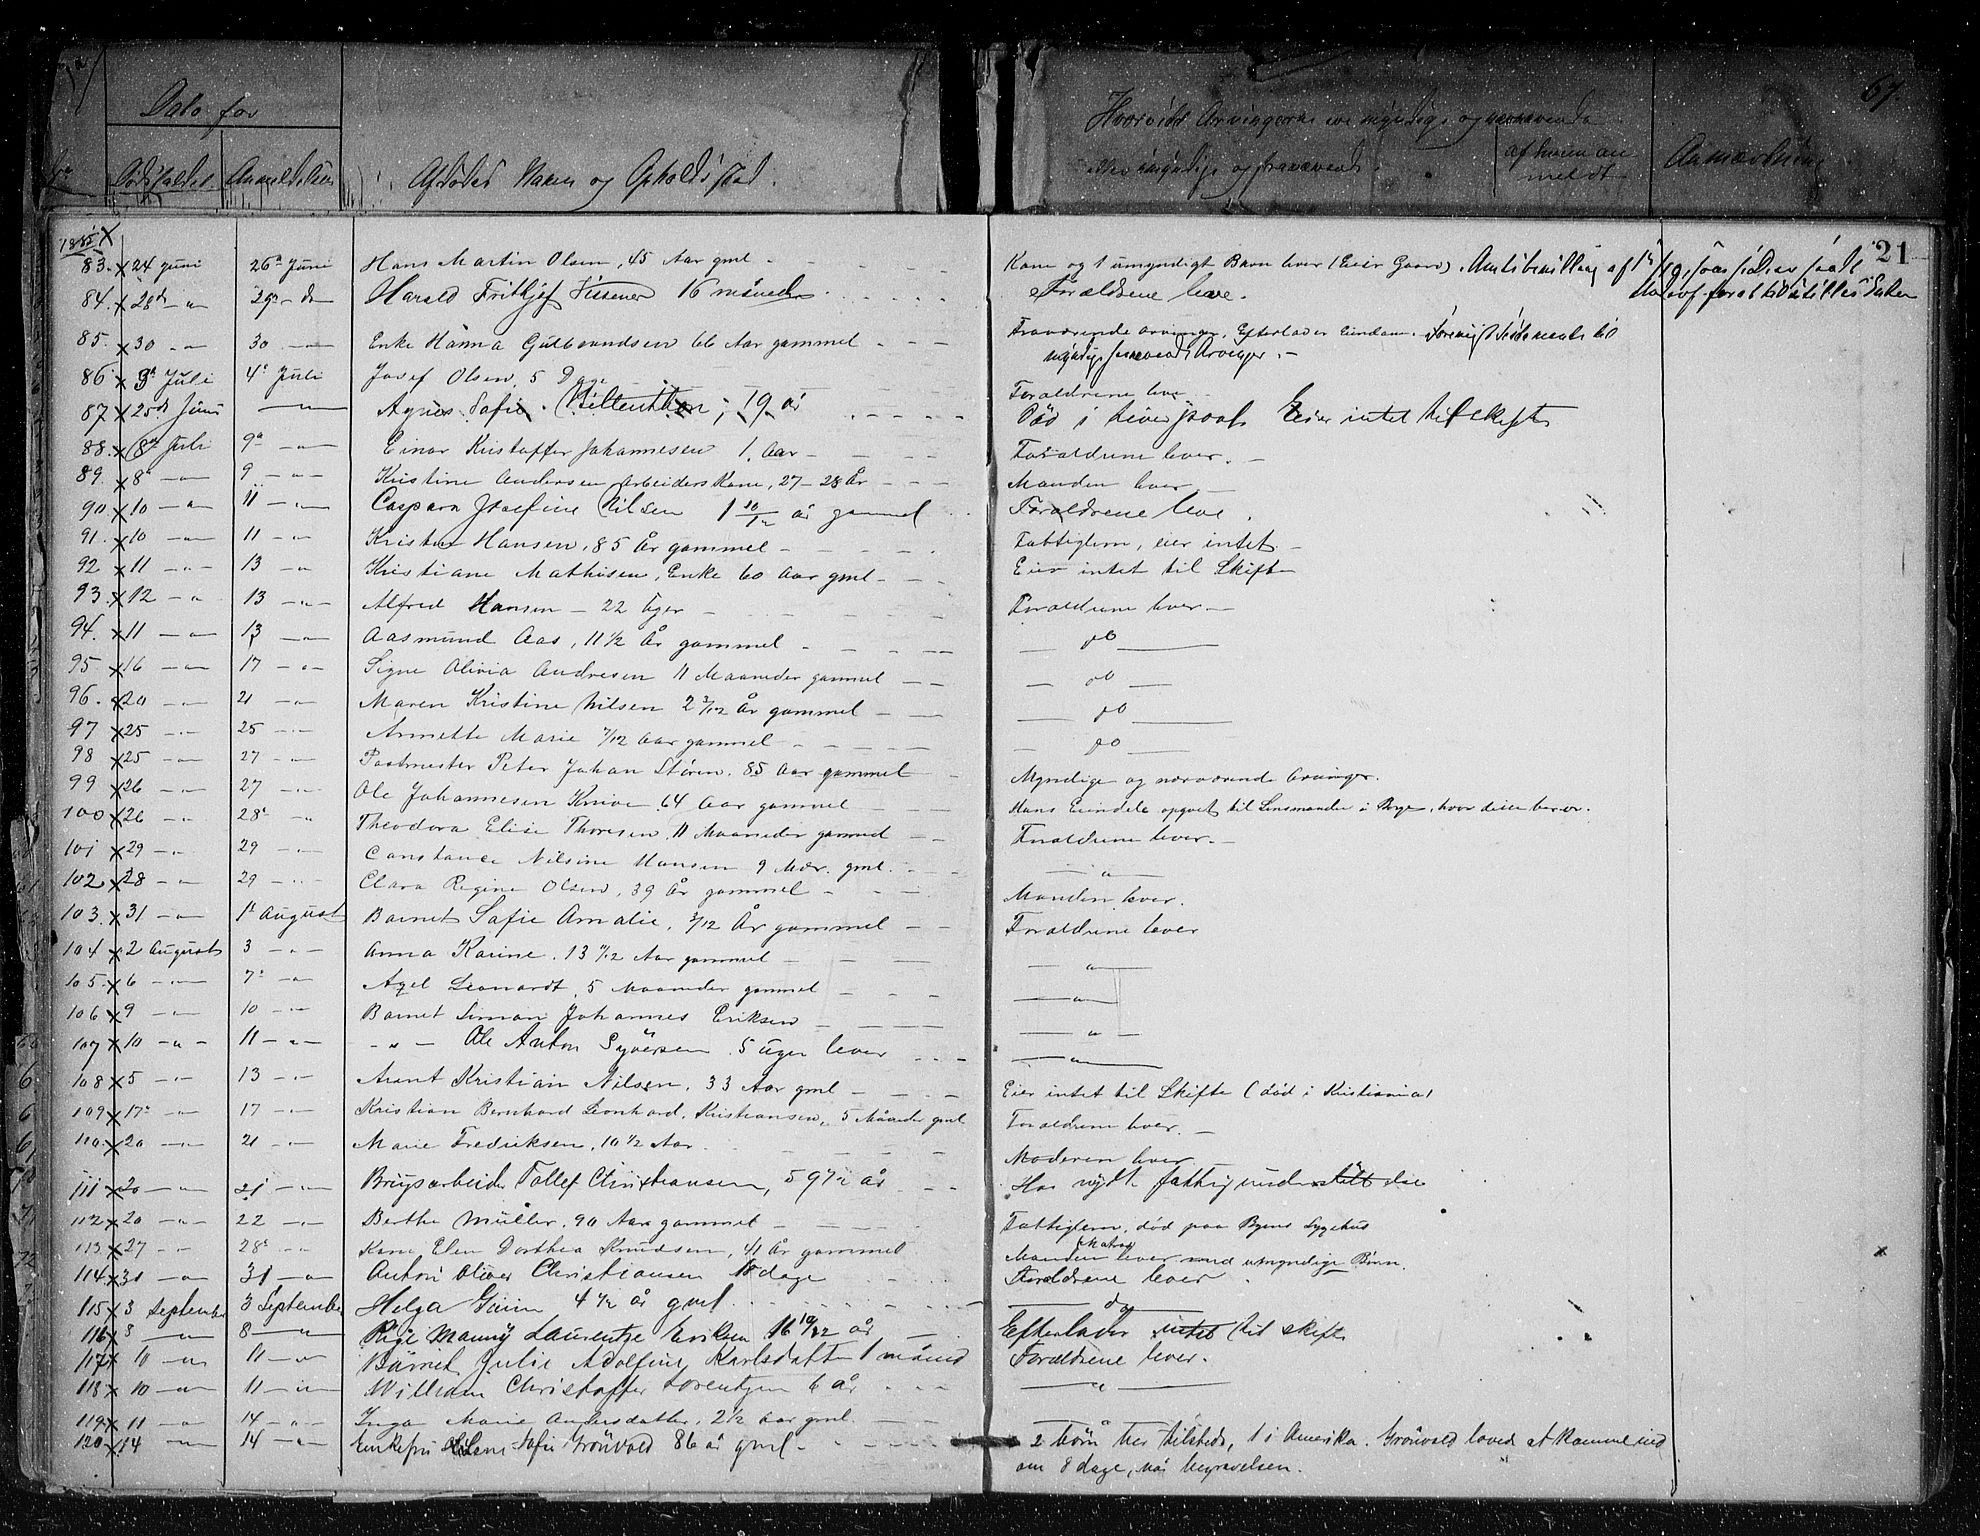 67.
Dato for
Nr
Dødsfaldet.
Anmeldelsen
Afdødes Navn og Opholdssted.
Hvorvidt Arvingerne ere myndige og nærværende
eller umyndige og fraværende.
af hvem an
meldt
Anmærkning
21
1885
83. 24 Juni 26de Juni Hans Martin Olsen, 45 Aar gml Kone og 1 umyndigt Barn lever (Eier Gaard). Amtsbevilling af
84. 28de 29de Harald Frithjef 16 måneder Forældrene leve.
85. 30 30 Enke Hanna Gulbrandsen 66 Aar gammel Fraværende arvinger. Efterlader Eiendom.
myndige Arvinger.
86 3de Juli 4de Juli Josef Olsen, 5 Dage Forældrene leve
87 25de Juni Agnes Sofie 19 år Död i Liverpool Eier intet til skifte
88. 8de Juli 9de Einar Kristoffer Johannesen 1 Aar Forældrene lever.
89. 8 9 Kristine Andersen Arbeiderskone, 27-28 År Manden lever
90 10 11 Caspara Josefine Nilsen 1 10/12 år gammel Forældrene leve.
91. 10 11 Hansen, 85 År gammel Fattiglem, eier intet
92 11 13 Kristiane Mathisen, Enke 60 Aar gml Eier intet til Skifte
93. 12 13 Alfred Hansen 22 Uger Forældrene lever
94. 11 13 Aasmund Aas, 11 1/2 År gammel do
95 16 17 Signe Olivia Andresen 11 Maaneder gammel do
96. 20 21 Maren Kristine Nilsen 2 3/12 År gammel do
97 25 25 Annette Marie 7/12 Aar gammel do
98 25 27 Postmester Peter Johan Stören. 85 Aar gammel Myndige og nærværende Arvinger.
99 26 27 Ole Johannesen Knive 64 Aar gammel Hans Eiendele opgivet til Lensmanden i Borge, hvor disse beror.
100 26 28de Theodora Elise Thoresen. 11 Maaneder gammel Forældrene lever.
101 29 29 Constance Nilsine Hansen 9 Mdr. gml. "
102 28 29 Clara Regine Olsen, 39 År gammel Manden lever.
103. 31 1ste August Barnet Sofie Amalie, 3/12 År gammel Forældrene lever
104 2 August 3 Anna Karine. 13 Aar gammel "
105. 6 7de Axel Leonardt, 5 Maaneder gammel "
106 9 10 Barnet Simon Johannes Eriksen "
107 10 11 " Ole Anton Syversen. 5 uger lever "
108 5 13 Arent Kristian Nilsen, 33 Aar gml Eier intet til Skifte (död i Kristiania)
109 17de 17 Kristian Bernhard Leonhard, Kristiansen, 5 Måneder gml Forældrene lever.
110. 20 21 Marie Fredriksen, 10 1/2 Aar Moderen lever
111 20 21 Brugsarbeider Tollef Christiansen, 59 1/2 år Har nydt fattigunderstöttelse
112 20 22 Berthe Müller, 90 Aar gammel Fattiglem, död paa Byens Sygehus
113 27 28de Kone Elen Dorthea Knudsen, 41 År gammel Manden lever med umyndige Börn.
114 31 31 Anton Oliver Christiansen 18 dage Forældrene lever
115 3 September 3 September Helga 4 1/2 år gml do
116 8 8 Pige Manny Laurentze Eriksen 16 10/12 år Efterlader intet til skifte
117 10 11 Barnet Julie Adolfine Karlsdatter 1 måned Forældrene lever.
118 10 11 William Christoffer Lorentzen 6 år "
119 11 14 Inga Marie Andersdatter, 2 1/2 Aar gml.
120 14 14 Enkefru Sofie Grönvold 86 år gml 2 börn her tilstede, 1 i Amerika. Grönvold lovede at komme ind
om 8 dage, når begravelsen.